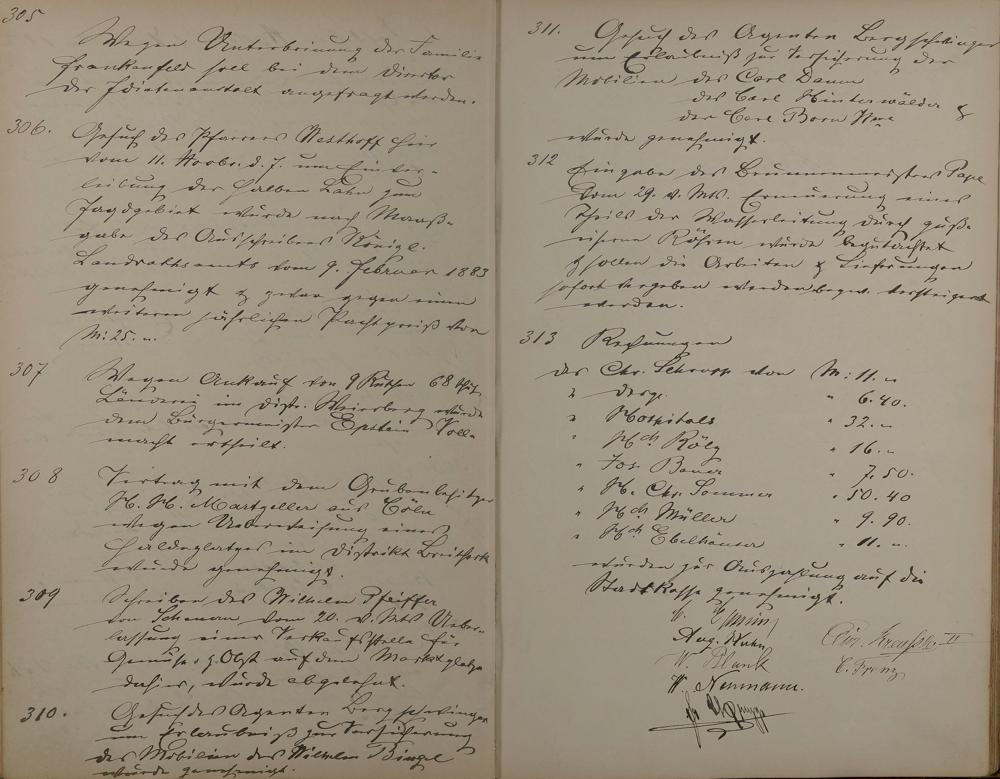 305
Wegen Unterbringung der Familie
Frankenfeld soll bei dem Director
der Idiotenanstalt angefragt werden.
306. Gesuch des Pfarrers Westhoff hier
vom 11. Novbr. d. J. um Einver-
leibung der halben Lahn zum
Jagdgebiet wurde nach Maaß-
gabe des Ausschreibens Königl.
Landrathsamts vom 9. Februar 1883
genehmigt & zwar gegen einen
weiteren jährlichen Pachtpreiß von
M: 25. „.
307 Wegen Ankauf von 9 Ruthen 68 Schuh
Länderei im Distr. Weiersberg wurde
dem Bürgermeister Epstein Voll-
macht ertheilt.
308 Vertrag mit dem Grubenbesitzer
H. H. Martgeller aus Cöln
wegen Ueberweisung eines
Haldeplatzes im Distrikt
wurde genehmigt.
309 Schreiben des Wilhelm Pfeiffer
von vom 20. v. Mts Ueber-
lassung einer Verkaufsstelle für
Gemüse & Obst auf dem Marktplatze
dahier, wurde abgelehnt.
310. Gesuch des Agenten Bergschwinger
um Erlaubniß zur Versicherung
des Mobilien des Wilhelm Bingel
wurde genehmigt.
311. Gesuch des Agenten Bergschwinger
um Erlaubniß zur Versicherung der
Mobilien des Carl Damm
des Carl Hinterwälder &
der Carl Born Wwe
wurde genehmigt.
312 Eingabe des Brunnenmeisters Pape
vom 29. v. Mts. Erneuerung eines
Theils der Wasserleitung durch guß-
eiserne Röhren wurde begutachtet
& sollen die Arbeiten & Lieferungen
sofort vergeben werden bezw. versteigert
werden.
313 Rechnungen
des Chr. Schrupp von M: 11. „
„ desgl. „ 6.40.
„ Hospitals „ 32. „
„ Hch Rölz „ 16. „
„ Jos. Bauer „ 7.50.
„ H. Chr. Sommer „ 50.40
„ Hch Müller „ 9.90.
„ Hch Ebelhäuser „ 11. „.
wurden zur Auszahlung auf die
Stadtkasse genehmigt.
Aug. Kuhn
W. Blank C. Franz
W. Neumann.